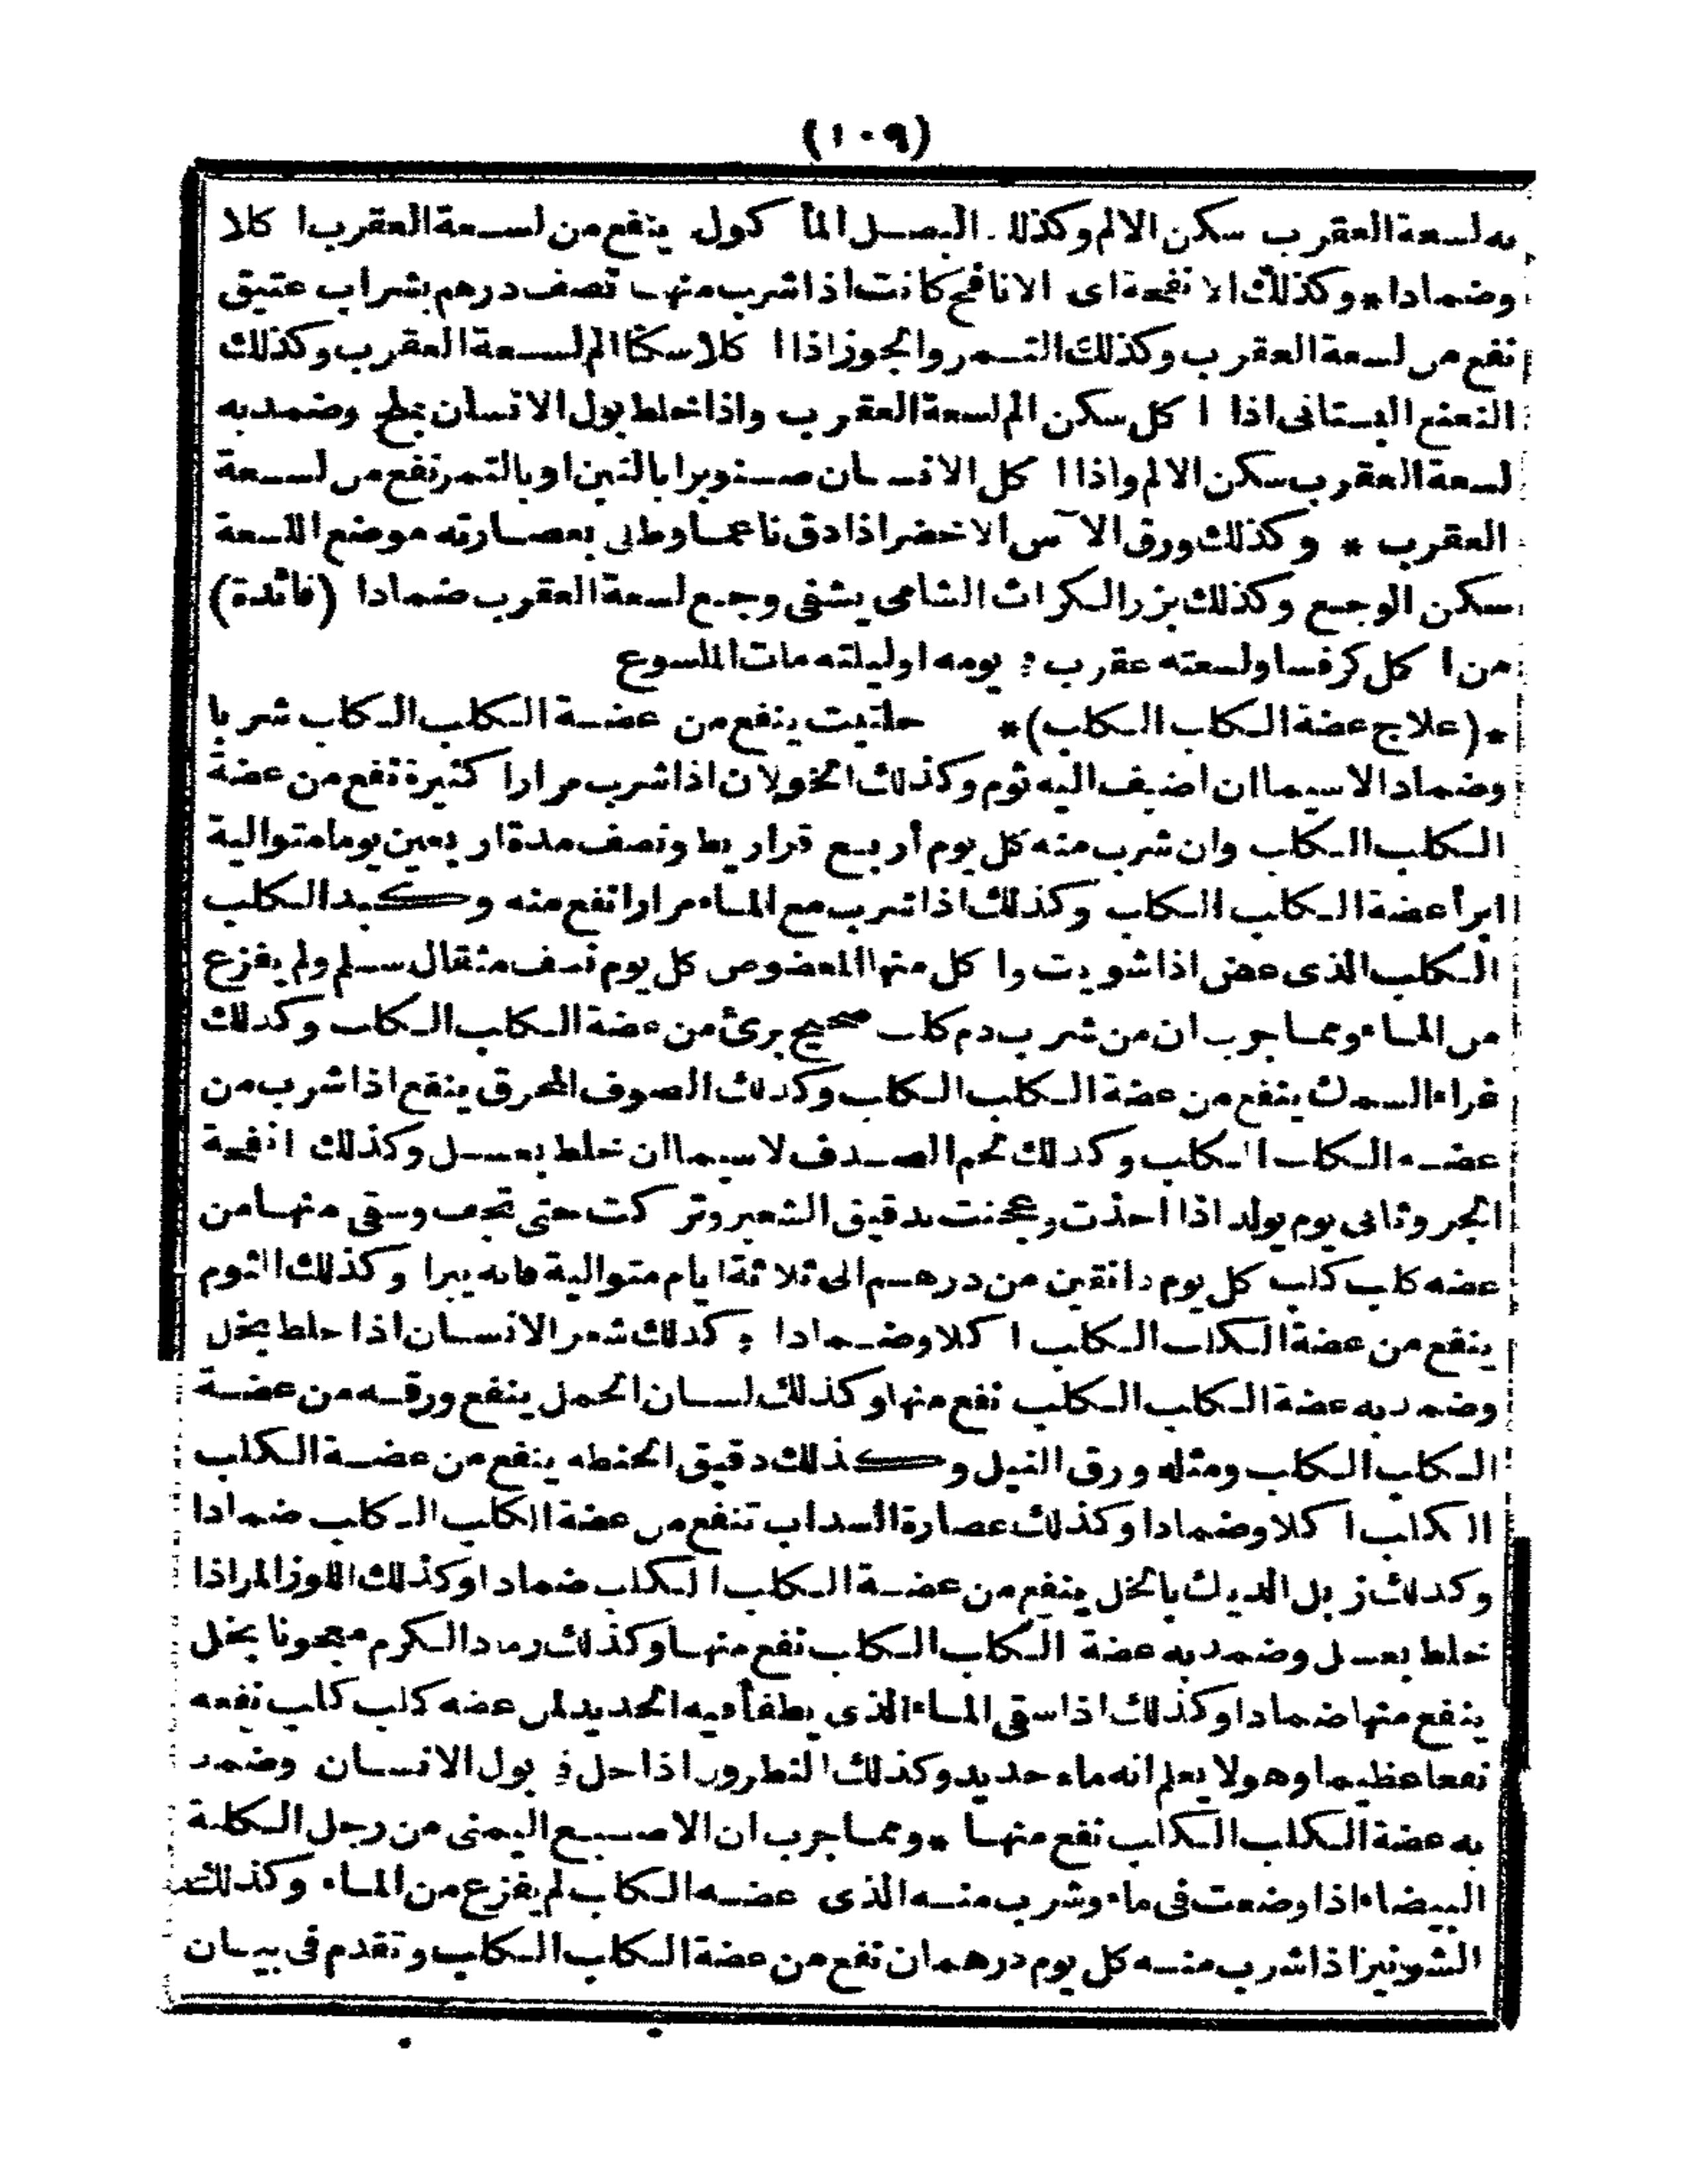 (١٠٩)
به لسعة العقرب سكن الالم وكذلك البصل المأكول ينفع من لسعة العقرب اكلا
وضمادا * وكذلك الانفحة اى الانافح كانت اذا شرب منها نصف درهم بشراب عتيق
نفع من لسعة العقرب وكذلك التمر والجوز اذا اكلا سكنا الم لسعة العقرب وكذلك
النعنع البستانى اذا اكل سكن الم لسعة العقرب واذا خلط بول الانسان بملح وضمد به
لسعة العقرب سكن الالم واذا اكل الانسان صنوبرا بالتين او بالتمر نفع من لسعة
العقرب * وكذلك ورق الآس الاخضر اذا دق ناعما وطلى بعصارته موضع اللسعة
سكن الوجع وكذلك بزر الكراث الشامى يشفى وجع لسعة العقرب ضمادا (فائدة)
من اكل كرفسا ولسعته عقرب فى يومه او ليلته مات الملسوع
*(علاج عضة الكلب الكلب)* حلتيت ينفع من عضة الكلب الكلب شربا
وضمادا لاسيما ان اضيف اليه ثوم وكذلك الخولان اذا شرب مرارا كثيرة نفع من عضة
الكلب الكلب وان شرب منه كل يوم أربع قراريط ونصف مدة اربعين يوما متوالية
ابرأ عضة الكلب الكلب وكذلك اذا شرب مع الماء مرارا نفع منه وكبد الكلب
الكلب الذى عض اذا شويت واكل منها المعضوض كل يوم نصف مثقال سلم ولم يفزع
من الماء ومما جرب ان من شرب دم كلب صحيح برئ من عضة الكلب الكلب وكذلك
غراء السمك ينفع من عضة الكلب الكلب وكذلك الصوف المحرق ينفع اذا شرب من
عضه الكلب الكلب وكذلك لحم الصدف لاسيما ان خلط بعسل وكذلك انفحة
الجرو ثانى يوم يولد اذا اخذت وعجنت بدقيق الشعير وتركت حتى تجف وسقى منها من
عضه كلب كلب كل يوم دانقين من درهم الى ثلاثة ايام متوالية فانه يبرا وكذلك الثوم
ينفع من عضة الكلب الكلب اكلا وضمادا وكذلك شعر الانسان اذا خلط بخل
وضمد به عضة الكلب الكلب نفع منها وكذلك لسان الحمل ينفع ورقه من عضة
الكلب الكلب ومثله ورق النيل وكذلك دقيق الحنطه ينفع من عضة الكلب
الكلب اكلا وضمادا وكذلك عصارة السداب تنفع من عضة الكلب الكلب ضمادا
وكذلك زبل الديك بالخل ينفع من عضة الكلب الكلب ضمادا وكذلك اللوز المر اذا
خلط بعسل وضمد به عضة الكلب الكلب نفع منها وكذلك رماد الكرم معجونا بخل
ينفع منها ضمادا وكذلك اذا سقى الماء الذى يطفأ فيه الحديد لمن عضه كلب كلب نفعه
نفعا عظيما وهو لا يعلم انه ماء حديد وكذلك النطرون اذا حل فى بول الانسان وضمد
به عضة الكلب الكلب نفع منها * ومما جرب ان الاصبع اليمنى من رجل الكلبة
البيضاء اذا وضعت فى ماء وشرب منه الذى عضه الكلب لم يفزع من الماء وكذلك
الشونيز اذا شرب منه كل يوم درهمان نفع من عضة الكلب الكلب وتقدم فى بيان